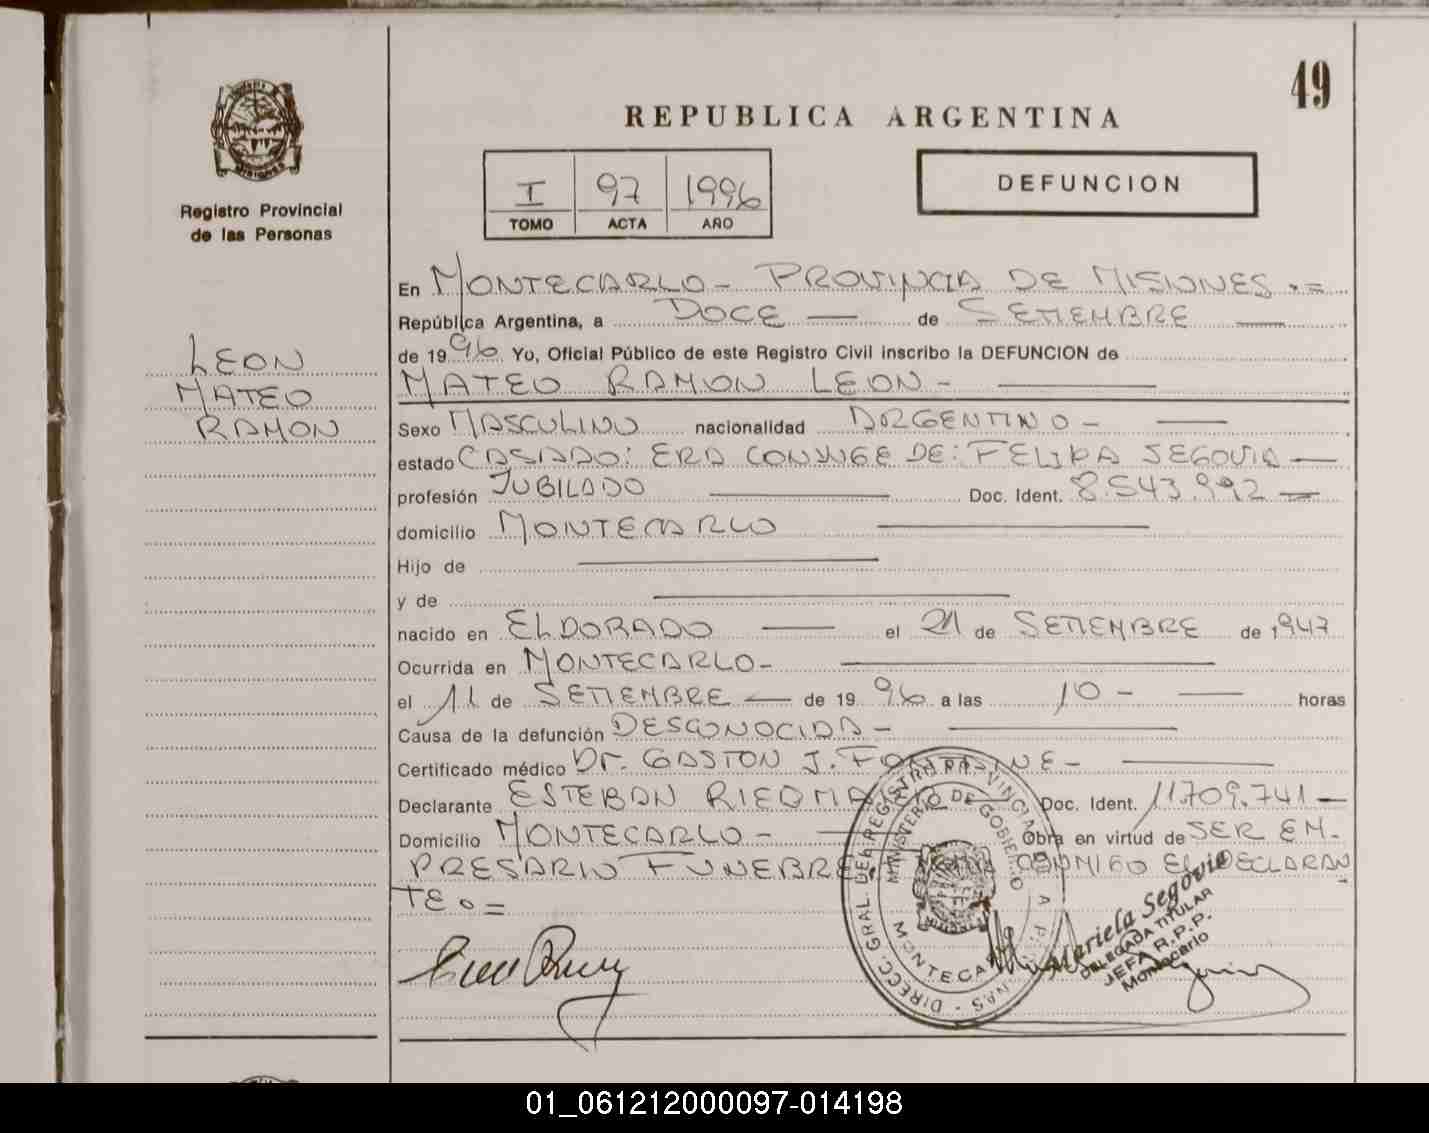 49
REPUBLICA ARGENTINA
MISIONES
Registro Provincial
de las Personas
I 97 1996
TOMO ACTA AÑO
DEFUNCION
LEON
MATEO
RAMON
En MONTECARLO - PROVINCIA DE MISIONES .=
República Argentina, a DOCE — de SETIEMBRE —
de 1996 Yo, Oficial Público de este Registro Civil inscribo la DEFUNCION de
MATEO RAMON LEON - —
Sexo MASCULINO nacionalidad ARGENTINO - —
estado CASADO: ERA CONYUGE DE: FELIPA SEGOVIA —
profesión JUBILADO — Doc. Ident. 8.543.992 —
domicilio MONTECARLO —
Hijo de —
y de —
nacido en ELDORADO — el 21 de SETIEMBRE de 1947
Ocurrida en MONTECARLO - —
el 11 de SETIEMBRE — de 1996 a las 10 - — horas
Causa de la defunción DESCONOCIDA - —
Certificado médico Dr. GASTON J. - —
Declarante ESTEBAN — Doc. Ident. 11.709.741 —
Domicilio MONTECARLO - — Obra en virtud de SER EM-
PRESARIO FUNEBRE. CONMIGO EL DECLARAN
TE.=
DIRECC. GRAL. DEL REGISTRO PROVINCIAL
MINISTERIO DE GOBIERNO
MONTECARLO
Mariela Segovia
DELEGADA TITULAR
JEFA R.P.P.
Montecarlo
01_061212000097-014198